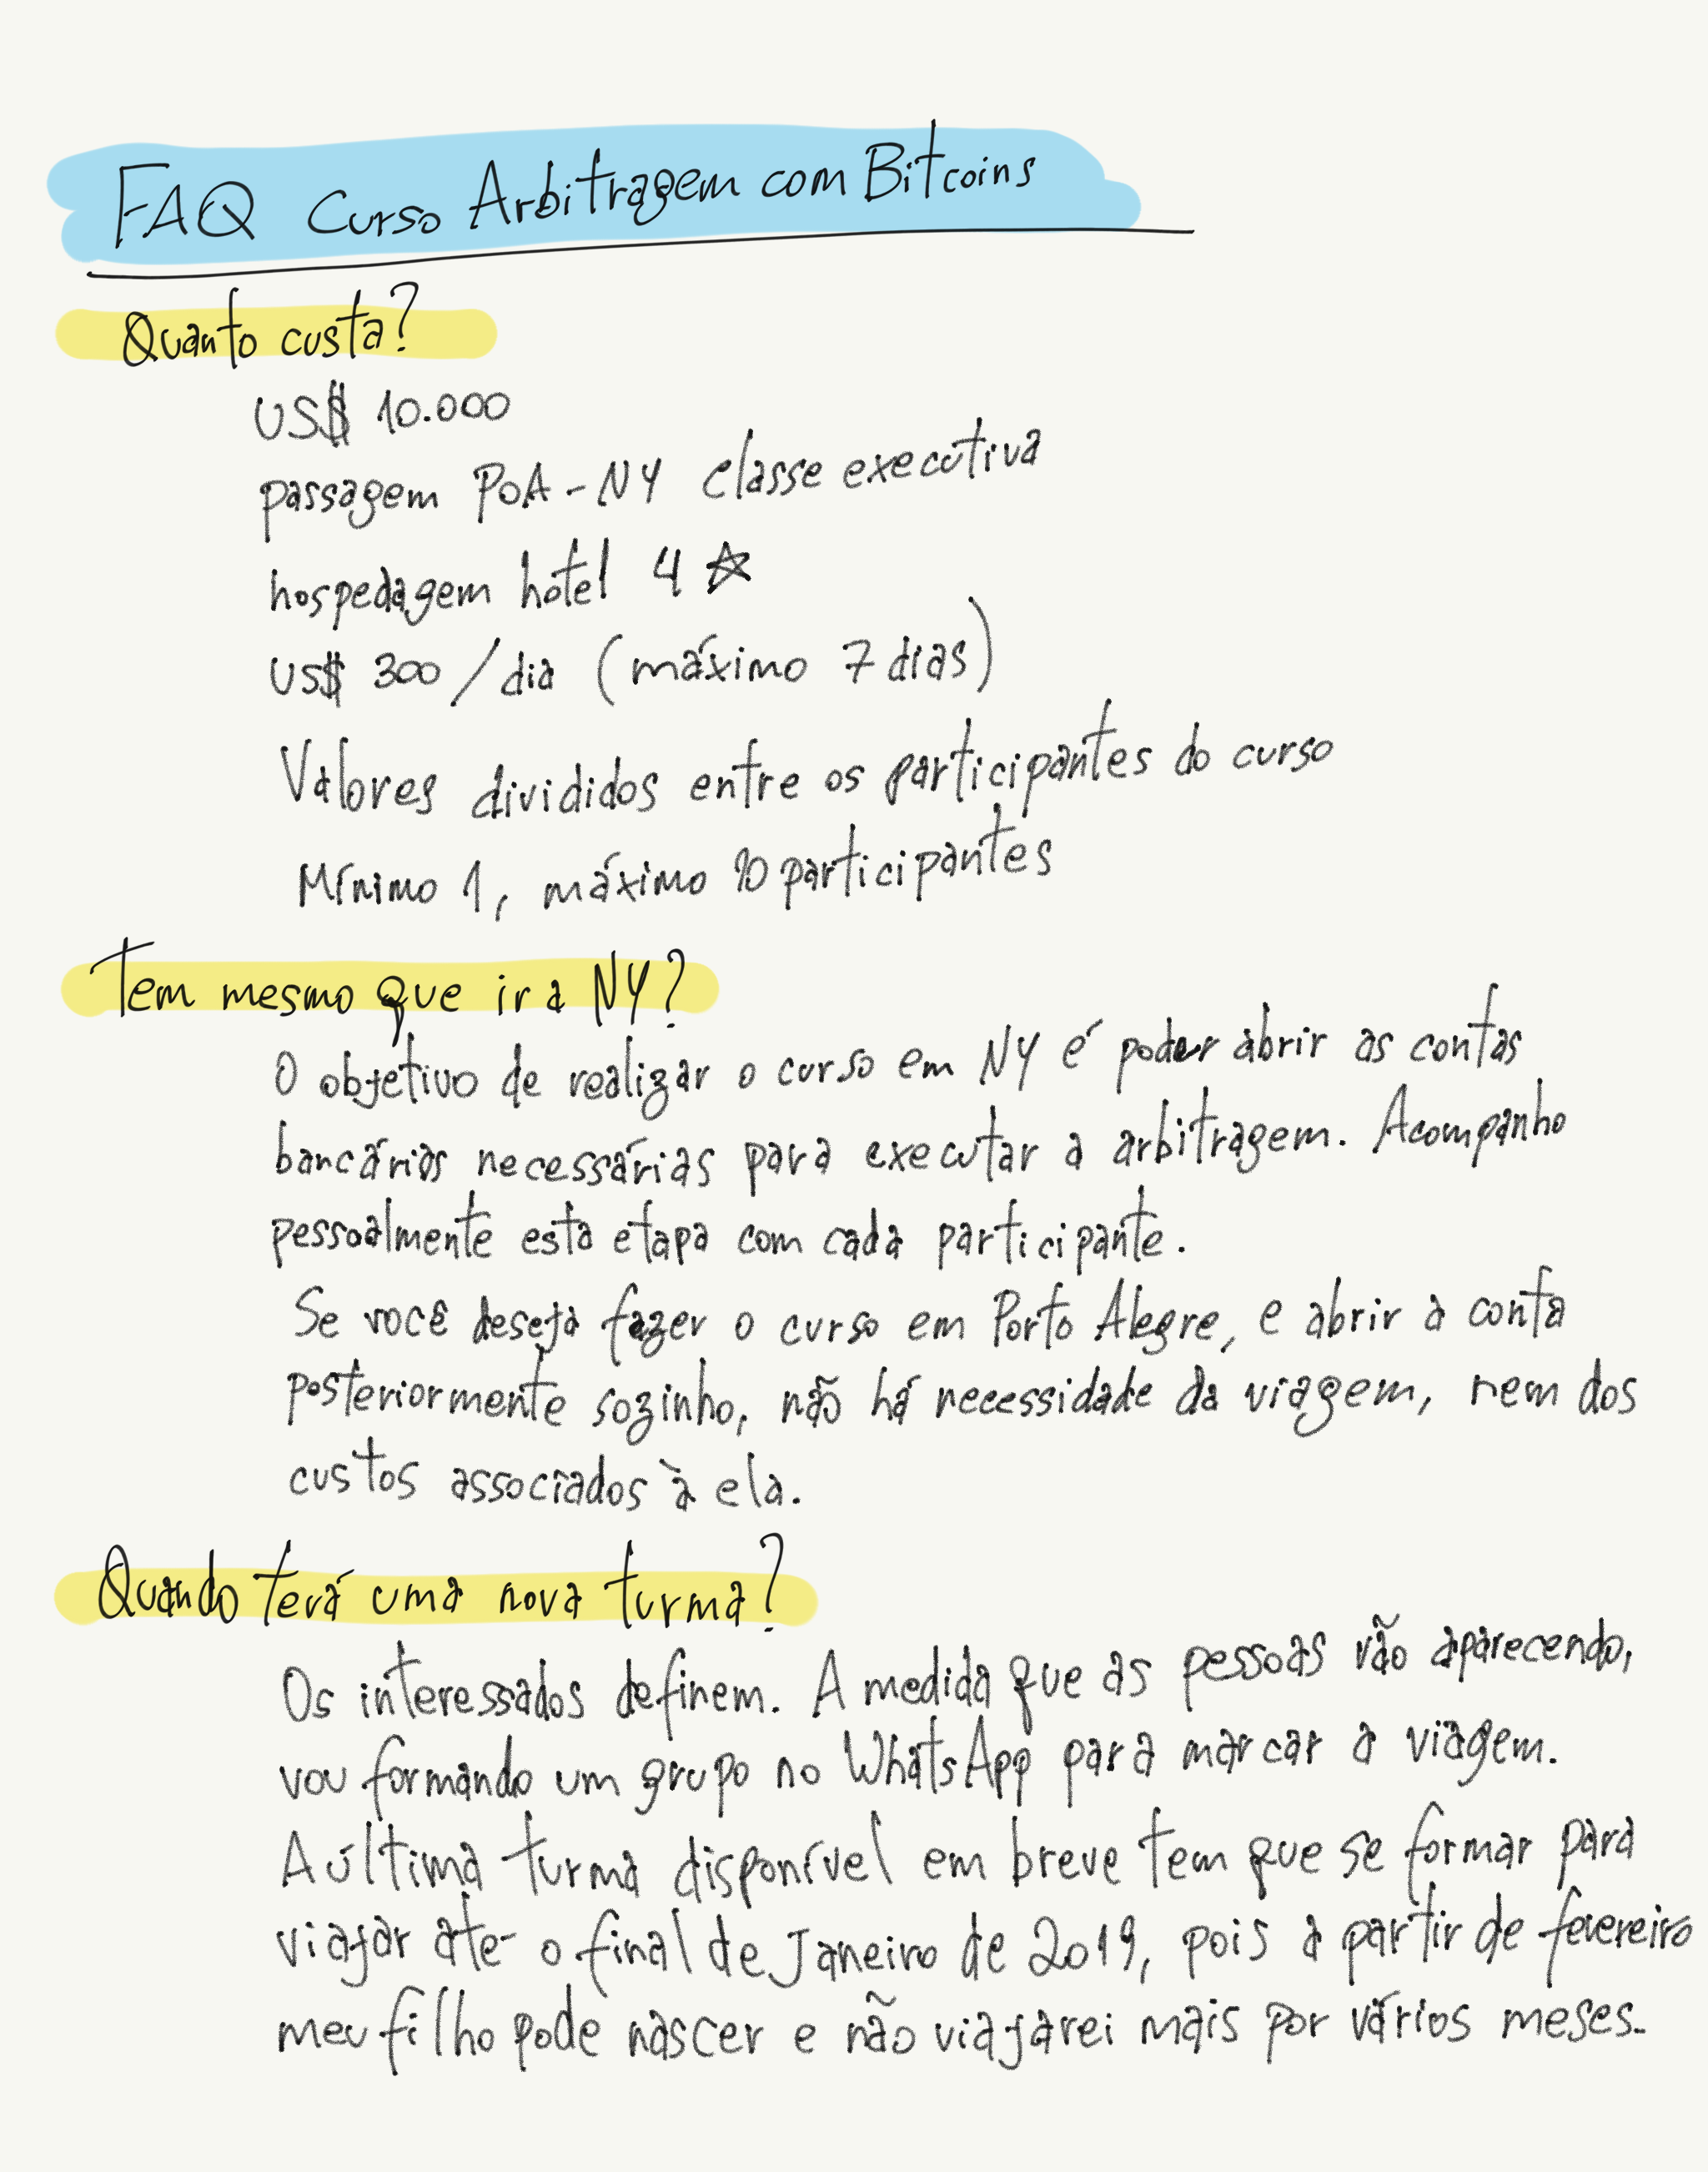 FAQ Curso Arbitragem com Bitcoins
Quanto custa?
US$ 10.000
passagem POA-NY classe executiva
hospedagem hotel 4 ☆
US$ 300/dia (máximo 7 dias)
Valores divididos entre os participantes do curso
Mínimo 1, máximo participantes
Tem mesmo que ir a NY?
O objetivo de realizar o curso em NY é poder abrir as contas
bancárias necessárias para executar a arbitragem. Acompanho
pessoalmente esta etapa com cada participante.
Se você deseja fazer o curso em Porto Alegre, e abrir a conta
posteriormente sozinho, não há necessidade da viagem, nem dos
custos associados à ela.
Quando terá uma nova turma?
Os interessados definem. A medida que as pessoas vão aparecendo,
vou formando um grupo no WhatsApp para marcar a viagem.
A última turma disponível em breve tem que se formar para
viajar até o final de Janeiro de 2019, pois a partir de fevereiro
meu filho pode nascer e não viajarei mais por vários meses.